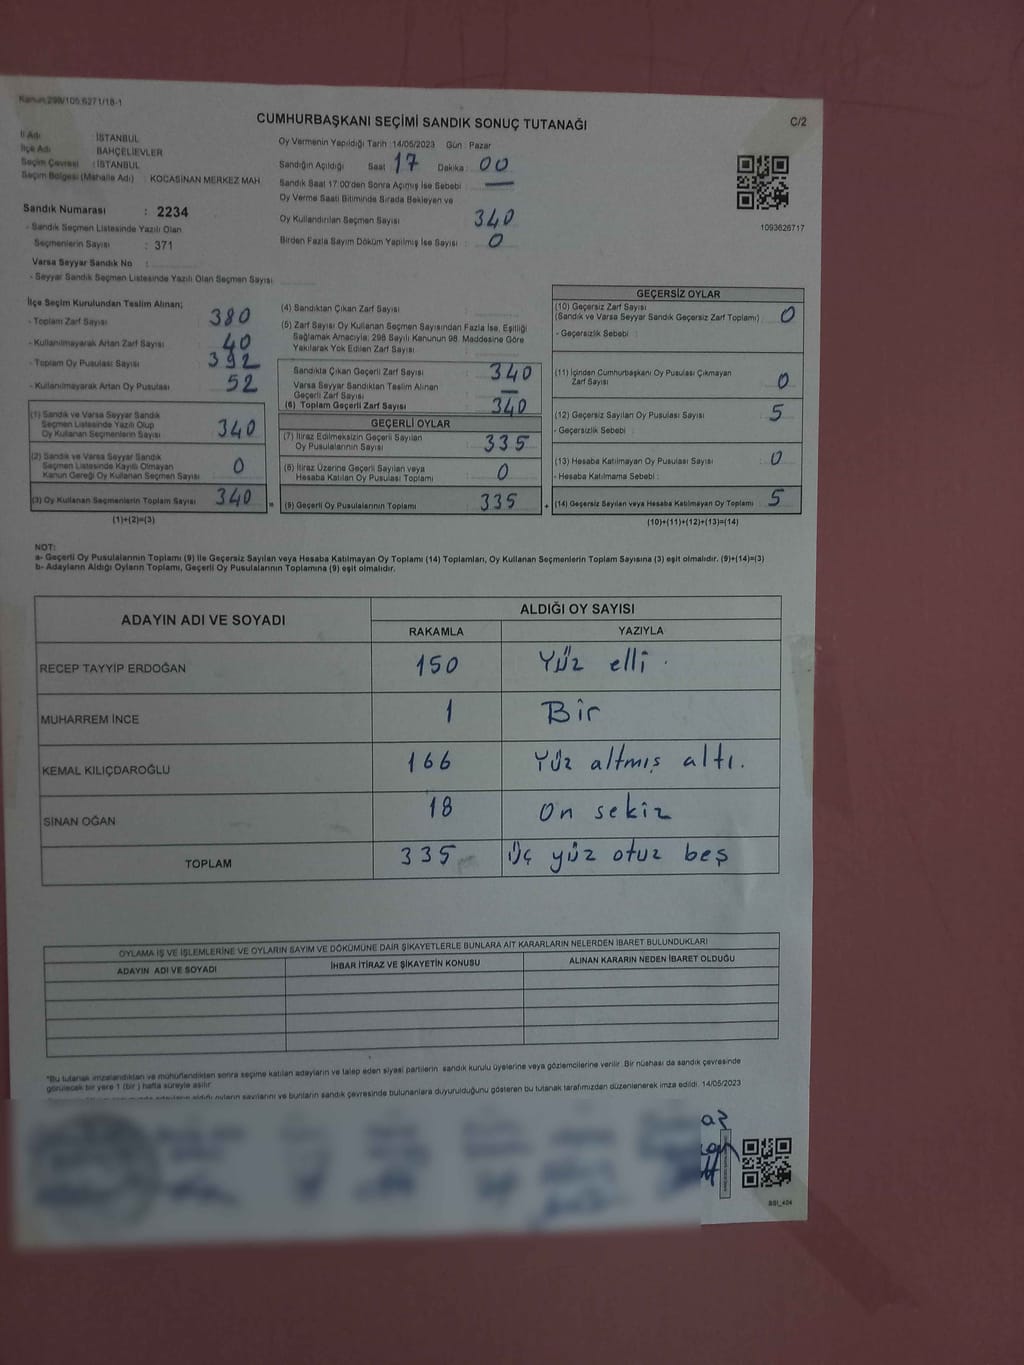 Kanun:298/105,6271/18-1
CUMHURBAŞKANI SEÇİMİ SANDIK SONUÇ TUTANAĞI
C/2
İl Adı : İSTANBUL
İlçe Adı : BAHÇELİEVLER
Seçim Çevresi : İSTANBUL
Seçim Bölgesi (Mahalle Adı) : KOCASİNAN MERKEZ MAH
Sandık Numarası : 2234
- Sandık Seçmen Listesinde Yazılı Olan
Seçmenlerin Sayısı : 371
Varsa Seyyar Sandık No :
- Seyyar Sandık Seçmen Listesinde Yazılı Olan Seçmen Sayısı :
Oy Vermenin Yapıldığı Tarih :14/05/2023 Gün : Pazar
Sandığın Açıldığı Saat 17 Dakika : 00
Sandık Saat 17:00'den Sonra Açılmış İse Sebebi : —
Oy Verme Saati Bitiminde Sırada Bekleyen ve
Oy Kullandırılan Seçmen Sayısı : 340
Birden Fazla Sayım Döküm Yapılmış İse Sayısı : 0
1093626717
İlçe Seçim Kurulundan Teslim Alınan;
- Toplam Zarf Sayısı : 380
- Kullanılmayarak Artan Zarf Sayısı : 40
- Toplam Oy Pusulası Sayısı : 392
- Kullanılmayarak Artan Oy Pusulası : 52
(1) Sandık ve Varsa Seyyar Sandık
Seçmen Listesinde Yazılı Olup
Oy Kullanan Seçmenlerin Sayısı : 340
(2) Sandık ve Varsa Seyyar Sandık
Seçmen Listesinde Kayıtlı Olmayan
Kanun Gereği Oy Kullanan Seçmen Sayısı : 0
(3) Oy Kullanan Seçmenlerin Toplam Sayısı : 340 =
(1)+(2)=(3)
(4) Sandıktan Çıkan Zarf Sayısı :
(5) Zarf Sayısı Oy Kullanan Seçmen Sayısından Fazla İse, Eşitliği
Sağlamak Amacıyla; 298 Sayılı Kanunun 98. Maddesine Göre
Yakılarak Yok Edilen Zarf Sayısı :
Sandıkla Çıkan Geçerli Zarf Sayısı : 340
Varsa Seyyar Sandıktan Teslim Alınan
Geçerli Zarf Sayısı : —
(6) Toplam Geçerli Zarf Sayısı : 340
GEÇERLİ OYLAR
(7) İtiraz Edilmeksizin Geçerli Sayılan
Oy Pusulalarının Sayısı : 335
(8) İtiraz Üzerine Geçerli Sayılan veya
Hesaba Katılan Oy Pusulası Toplamı : 0
(9) Geçerli Oy Pusulalarının Toplamı : 335 +
GEÇERSİZ OYLAR
(10) Geçersiz Zarf Sayısı
(Sandık ve Varsa Seyyar Sandık Geçersiz Zarf Toplamı) : 0
- Geçersizlik Sebebi :
(11) İçinden Cumhurbaşkanı Oy Pusulası Çıkmayan
Zarf Sayısı : 0
(12) Geçersiz Sayılan Oy Pusulası Sayısı : 5
- Geçersizlik Sebebi :
(13) Hesaba Katılmayan Oy Pusulası Sayısı : 0
- Hesaba Katılmama Sebebi :
(14) Geçersiz Sayılan veya Hesaba Katılmayan Oy Toplamı : 5
(10)+(11)+(12)+(13)=(14)
NOT:
a- Geçerli Oy Pusulalarının Toplamı (9) ile Geçersiz Sayılan veya Hesaba Katılmayan Oy Toplamı (14) Toplamları, Oy Kullanan Seçmenlerin Toplam Sayısına (3) eşit olmalıdır. (9)+(14)=(3)
b- Adayların Aldığı Oyların Toplamı, Geçerli Oy Pusulalarının Toplamına (9) eşit olmalıdır.
ADAYIN ADI VE SOYADI
ALDIĞI OY SAYISI
RAKAMLA YAZIYLA
RECEP TAYYİP ERDOĞAN 150 Yüz elli .
MUHARREM İNCE 1 Bir
KEMAL KILIÇDAROĞLU 166 Yüz altmış altı.
SİNAN OĞAN 18 On sekiz
TOPLAM 335 Üç yüz otuz beş
OYLAMA İŞ VE İŞLEMLERİNE VE OYLARIN SAYIM VE DÖKÜMÜNE DAİR ŞİKAYETLERLE BUNLARA AİT KARARLARIN NELERDEN İBARET BULUNDUKLARI
ADAYIN ADI VE SOYADI İHBAR İTİRAZ VE ŞİKAYETİN KONUSU ALINAN KARARIN NEDEN İBARET OLDUĞU
*Bu tutanak imzalandıktan ve mühürlendikten sonra seçime katılan adayların ve talep eden siyasi partilerin sandık kurulu üyelerine veya gözlemcilerine verilir. Bir nüshası da sandık çevresinde
görülecek bir yere 1 (bir) hafta süreyle asılır.
aldığı oyların sayılarını ve bunların sandık çevresinde bulunanlara duyurulduğunu gösteren bu tutanak tarafımızdan düzenlenerek imza edildi. 14/05/2023